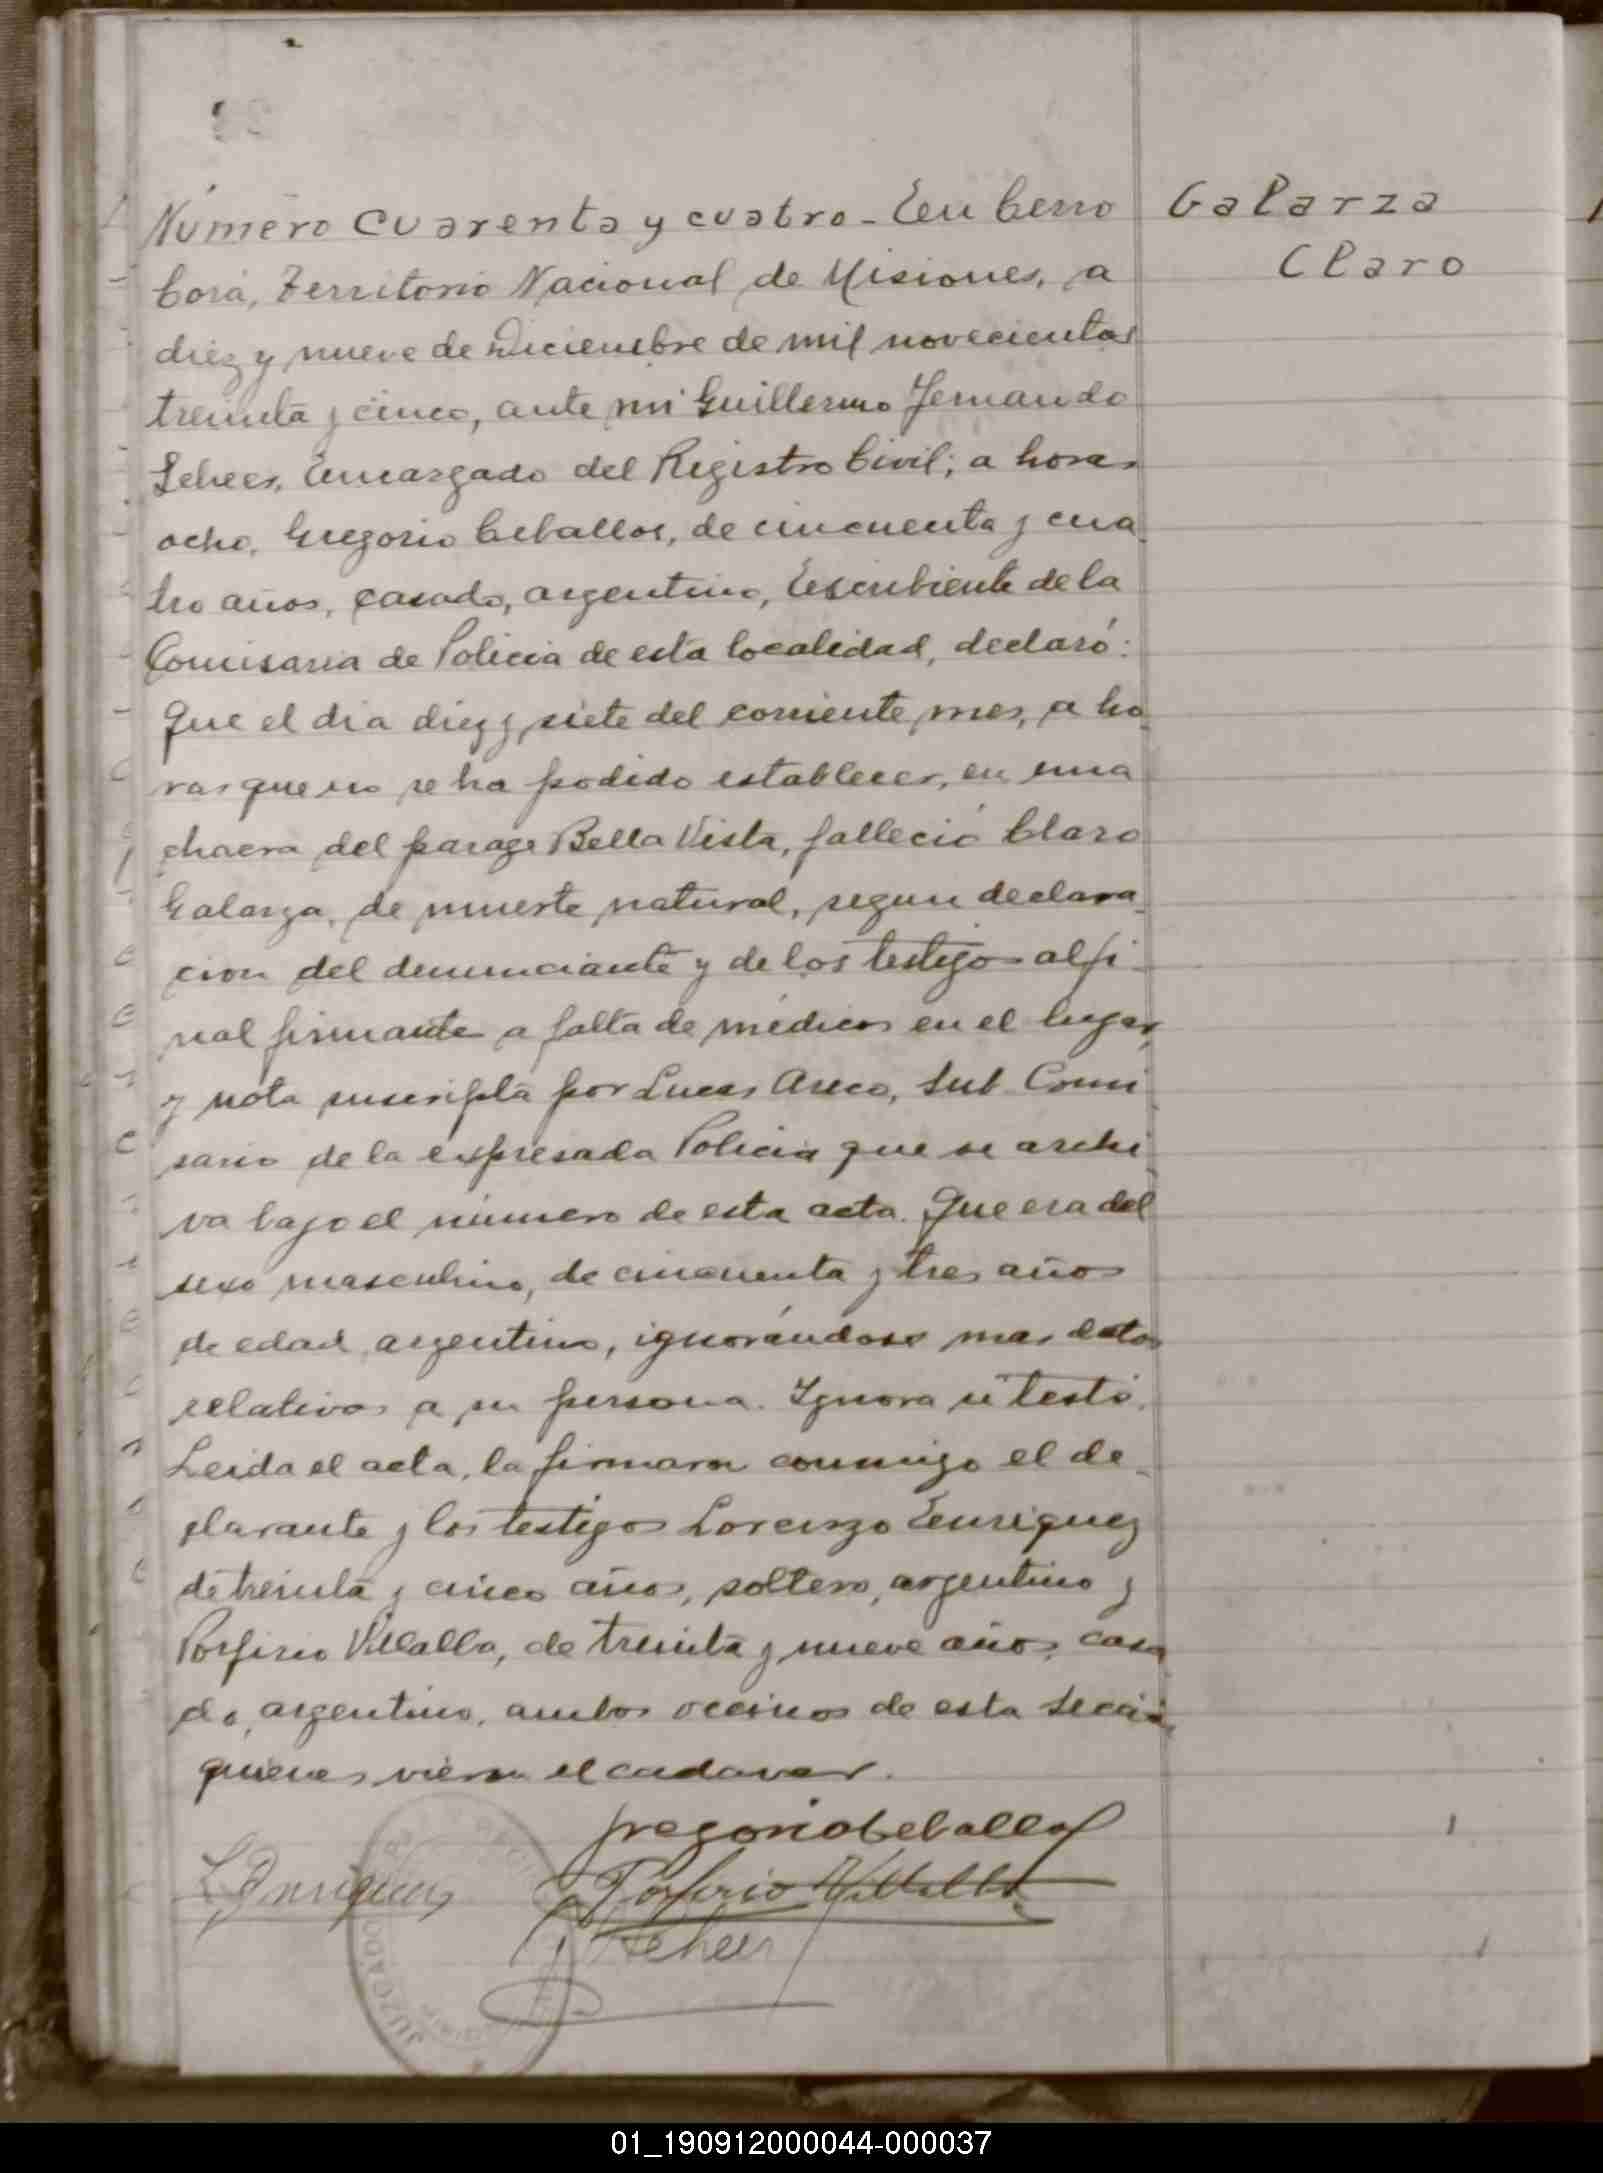 Número cuarenta y cuatro - En Cerro
Corá, Territorio Nacional de Misiones, a
diez y nueve de Diciembre de mil novecientos
treinta y cinco, ante mi Guillermo Fernando
Scheer, Encargado del Registro Civil; a horas
ocho, Gregorio Ceballos, de cincuenta y cua
tro años, casado, argentino, Escribiente de la
Comisaria de Policia de esta localidad, declaró:
Que el dia diez y siete del corriente mes, a ho
ras que no se ha podido establecer, en una
chacra del parage Bella Vista, falleció Claro
Galarza, de muerte natural, segun declara
cion del denunciante y de los testigos al fi
nal firmante a falta de médicos en el lugar,
y nota suscripta por Lucas Areco, Sub Comi
sario de la expresada Policia que se archi
va bajo el número de esta acta. Que era del
sexo masculino, de cincuenta y tres años
de edad, argentino, ignorándose mas datos
relativos a su persona. Ignora si testó.
Leida el acta, la firmaron conmigo el de
clarante y los testigos Lorenzo Enriquez
de treinta y cinco años, soltero, argentino y
Porfirio Villalba, de treinta y nueve años, casa
do, argentino, ambos vecinos de esta Sección
quienes vieron el cadaver.
Galarza
Claro
Gregorio Ceballos
L Enriquez
Porfirio Villalba
Scheer
JUZGADO
01_190912000044-000037